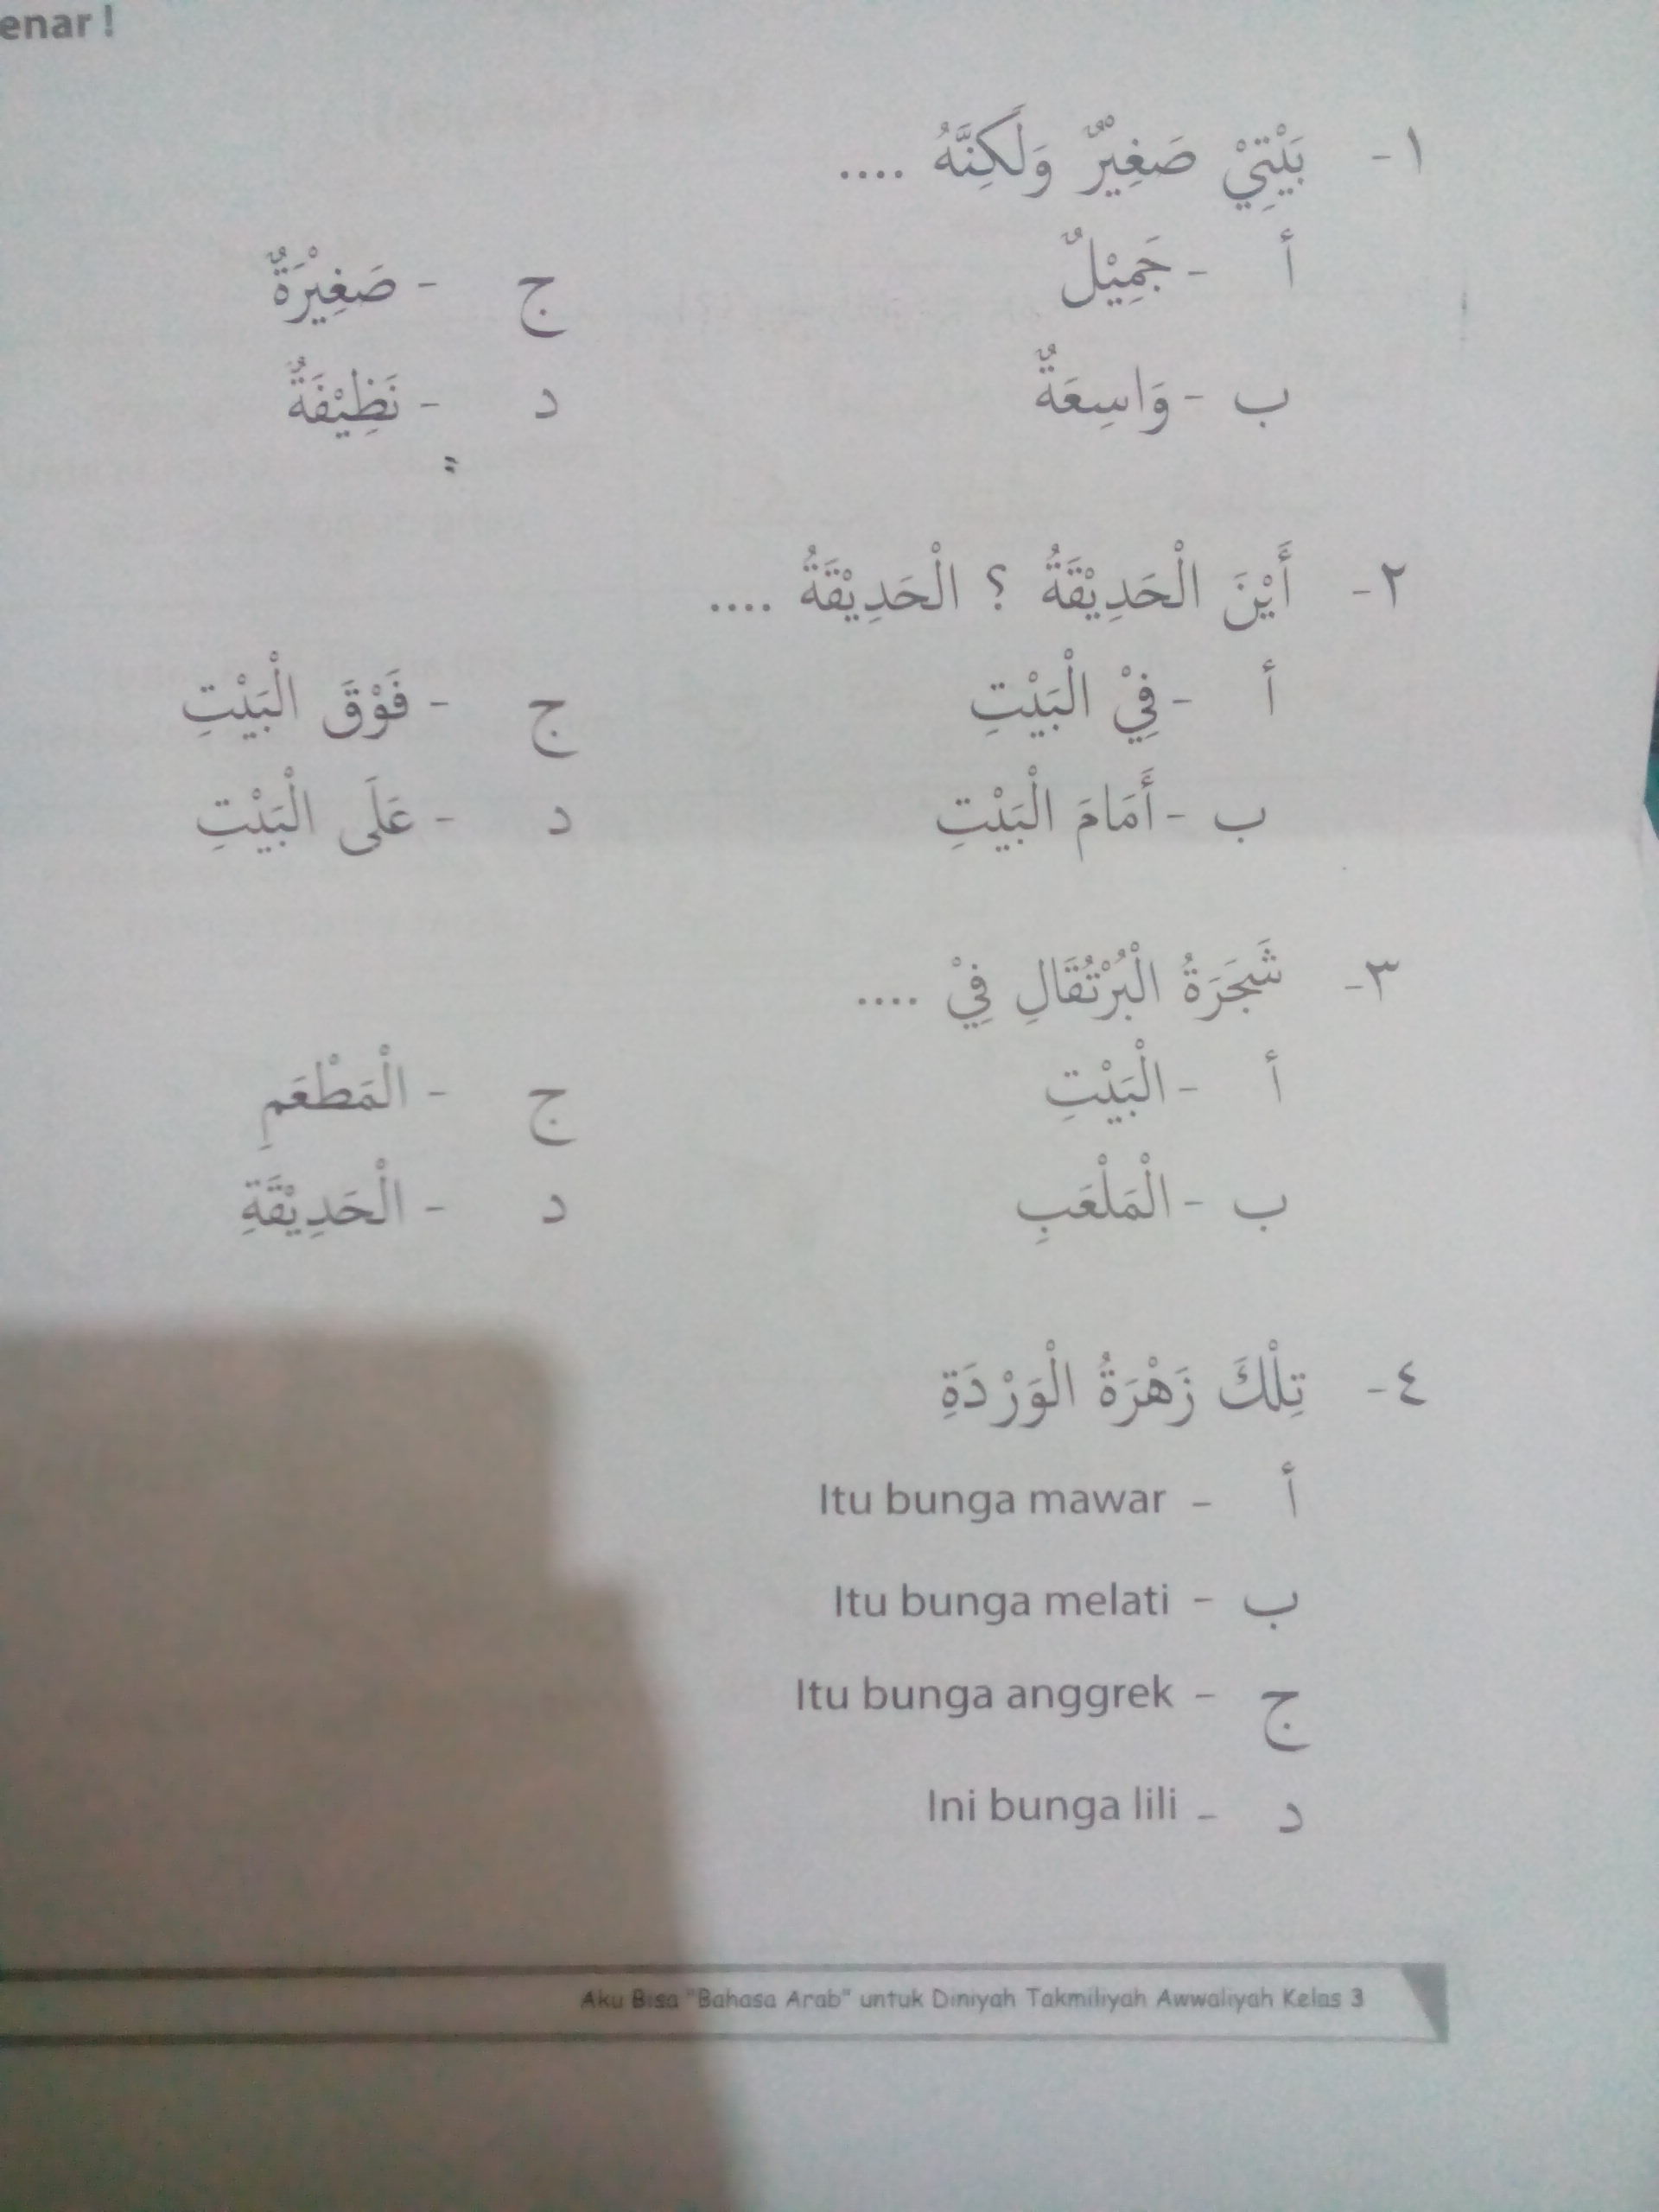 enar !
١- بَيْتِيْ صَغِيْرٌ وَلَكِنَّهُ ....
أ - جَمِيْلٌ ج - صَغِيْرَةٌ
ب - وَاسِعَةٌ د - نَظِيْفَةٌ
٢- أَيْنَ الْحَدِيْقَةُ ؟ الْحَدِيْقَةُ ....
أ - فِيْ الْبَيْتِ ج - فَوْقَ الْبَيْتِ
ب - أَمَامَ الْبَيْتِ د - عَلَى الْبَيْتِ
٣- شَجَرَةُ الْبُرْتُقَالِ فِيْ ....
أ - الْبَيْتِ ج - الْمَطْعَمِ
ب - الْمَلْعَبِ د - الْحَدِيْقَةِ
٤- تِلْكَ زَهْرَةُ الْوَرْدَةِ
أ - Itu bunga mawar
ب - Itu bunga melati
ج - Itu bunga anggrek
د - Ini bunga lili
Aku Bisa "Bahasa Arab" untuk Diniyah Takmiliyah Awwaliyah Kelas 3